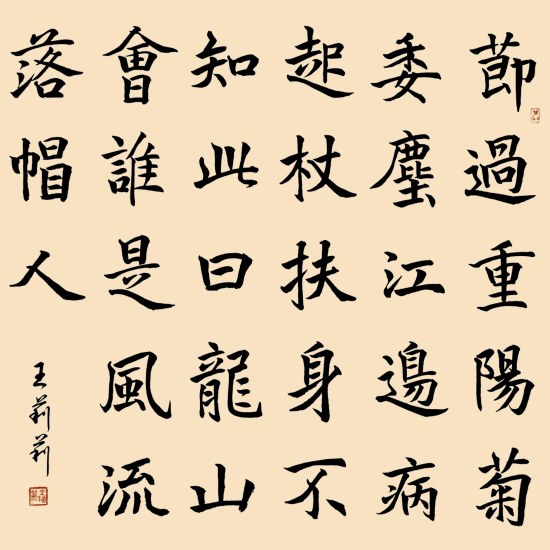 節過重陽菊
委塵江邊病
起杖扶身不
知此日龍山
會誰是風流
落帽人
王莉莉